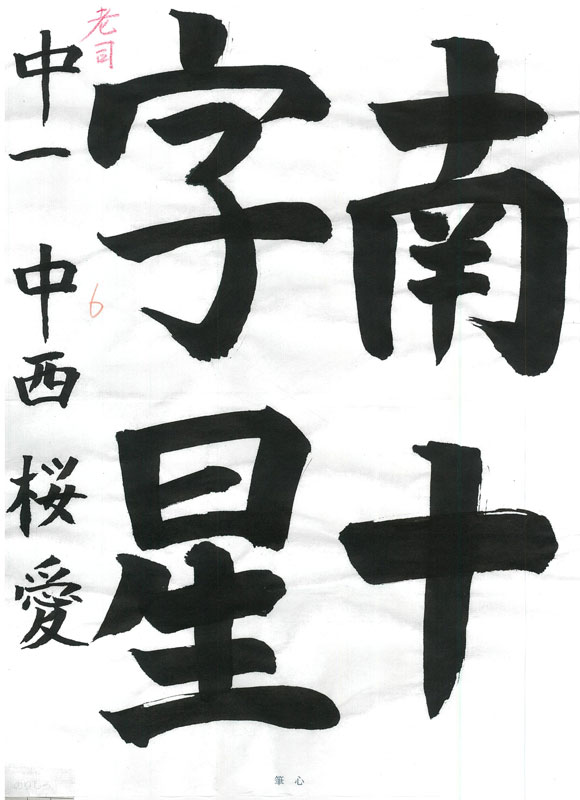 南十
字星
中一 中西桜愛
老司
6
筆心